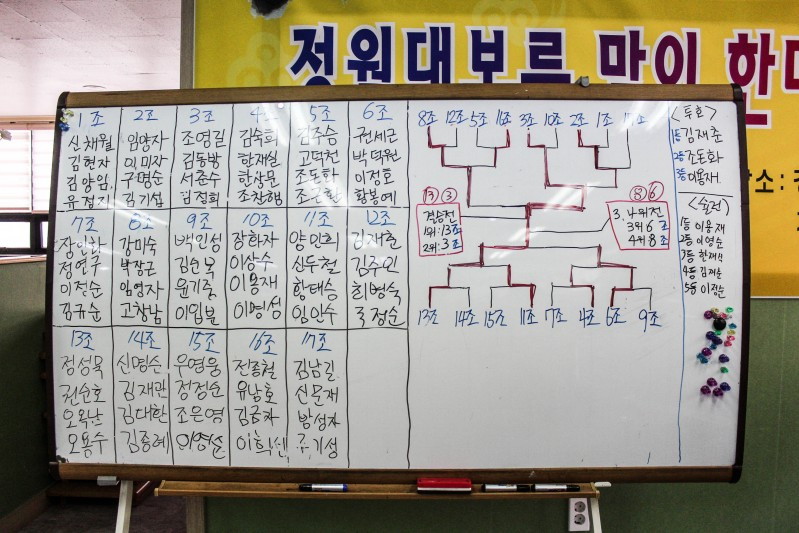 정월대보름 맞이 한
장소:
1조 2조 3조 4조 5조 6조
신채월 임양자 조영길 김숙희 김주승 권세근
김현자 이미자 김동방 한재실 고덕천 박덕원
김양임 구명순 서준수 한상문 조동화 이정호
김기설 김정희 조창해 황봉예
7조 8조 9조 10조 11조 12조
강미숙 백인성 장화자 양인희 김재훈
정연구 박장근 김순옥 이상수 신두철 김주인
이전순 임영자 윤기중 이용재 황태승 최병숙
김규순 고창남 이임분 이영성 임안수 국정순
13조 14조 15조 16조 17조
정성목 신명슨 우영웅 전종철 김남길
권순호 김재관 정정순 유남호 신문재
오옥난 김대환 조은영 김금자 방성자
오용수 김종례 이영순 이희선 류기성
8조 12조 5조 16조 3조 10조 2조 1조 17조
⑬ ③
결승전
1위:13조
2위:3조
⑧ ⑥
3,4위전
3위 6조
4위 8조
13조 14조 15조 11조 7조 4조 6조 9조
<투호>
1등 김재춘
2등 조동화
3등 이용재
<윷놀이>
1등 이용재
2등 이영순
3등 한재석
4등 김재훈
5등 이정순